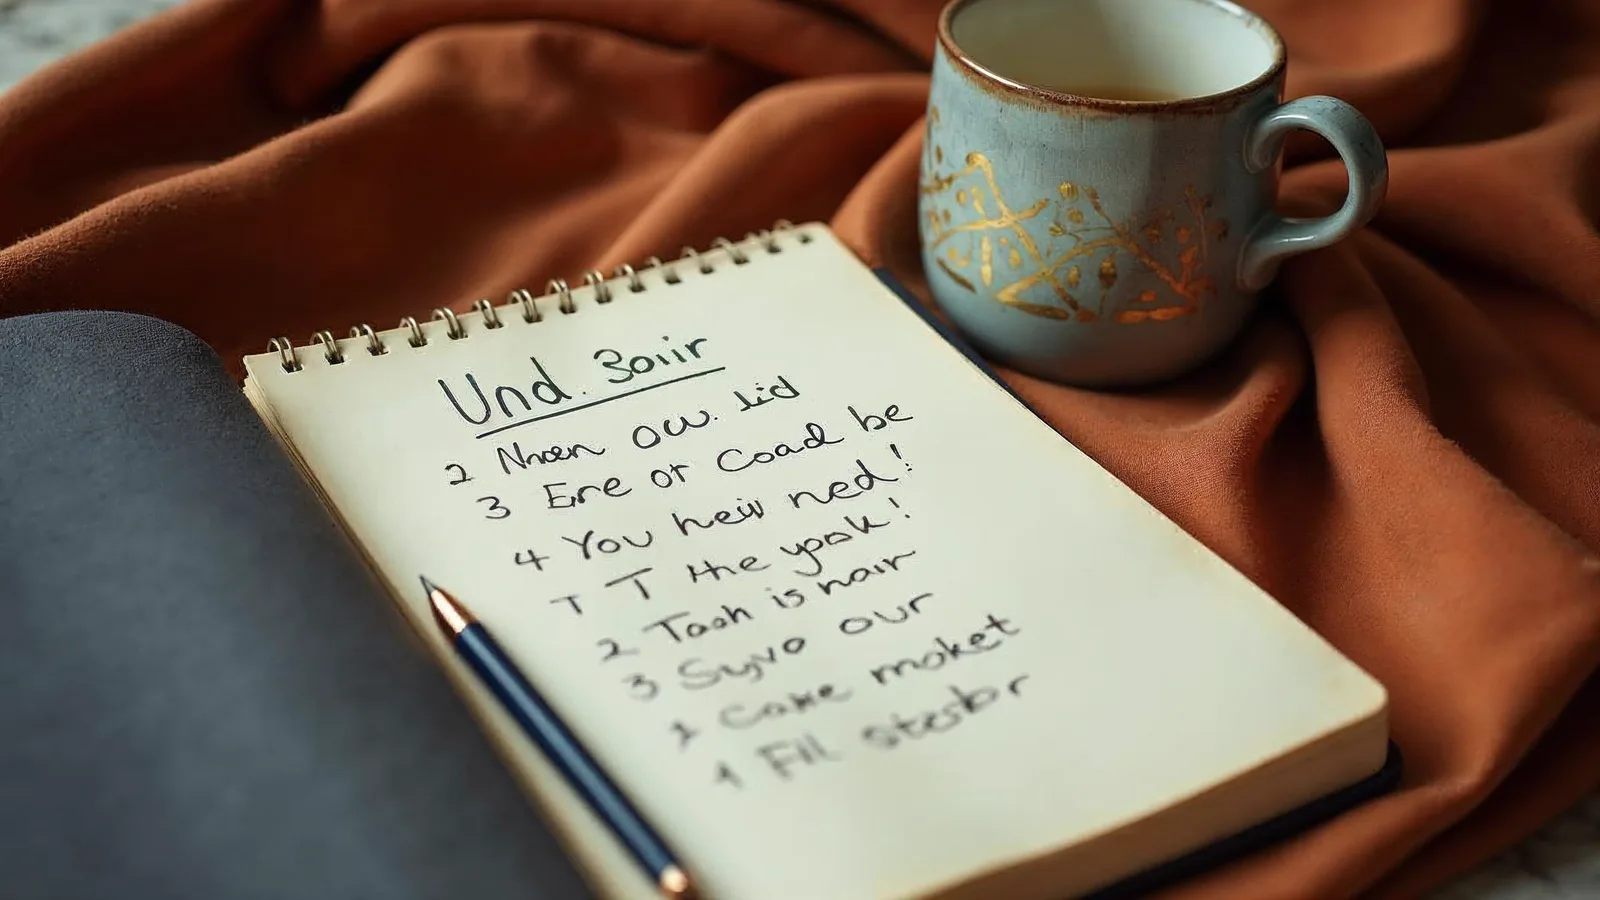 Und. 3oiir
2 Nnoen OW. lid
3 Ere or Coad be
4 You heiv ned!
T T the yook!
2 Tash is nair
3 Syvo our
1 Cake moket
1 Fill stesbr